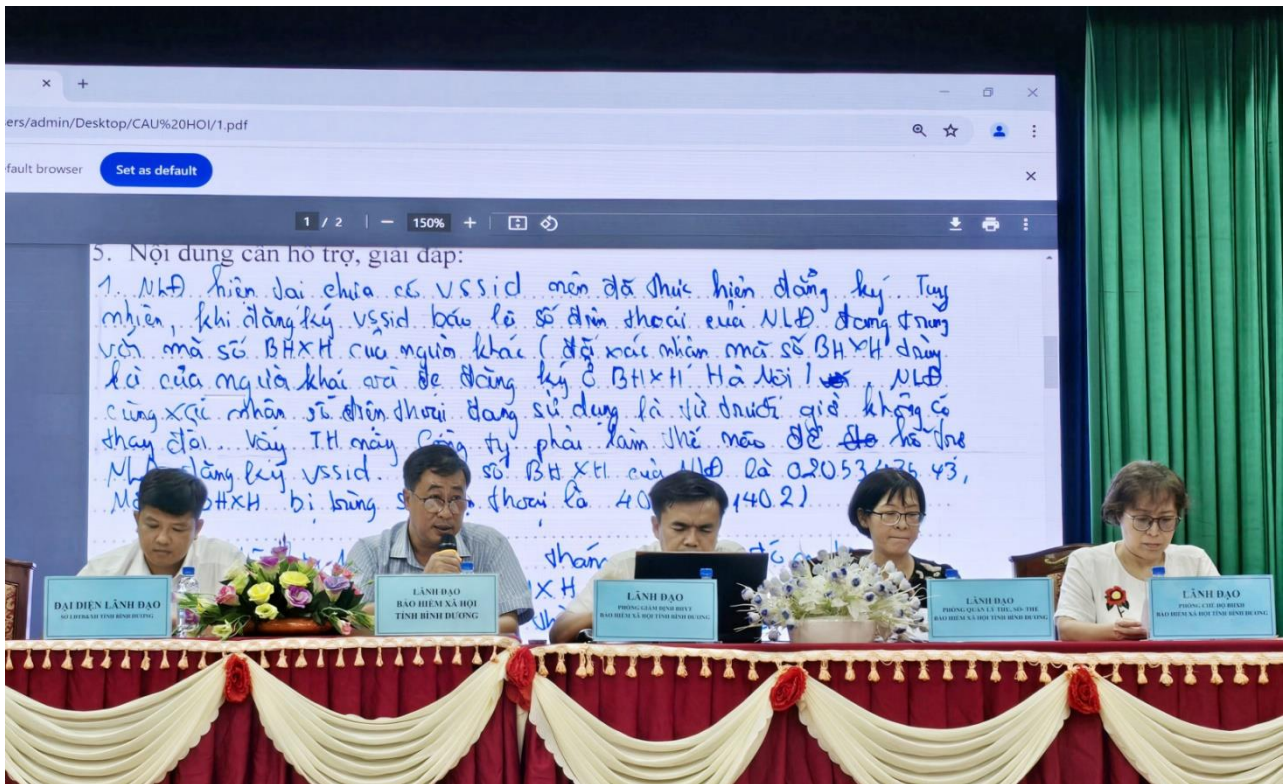 ers/admin/Desktop/CAU%20HOI/1.pdf
fault browser Set as default
1 / 2 150%
5. Nội dung cần hỗ trợ, giải đáp:
1. NLĐ hiện tại chưa có VssiD nên đã thực hiện đăng ký. Tuy
nhiên, khi đăng ký vssid báo là số điện thoại của NLĐ đang trùng
với mã số BHXH của người khác (đã xác nhận mã số BHXH trùng
là của người khác và đã đăng ký ở BHXH Hà Nội), NLĐ
cũng xác nhận số điện thoại đang sử dụng là từ trước giờ không có
thay đổi. Vậy TH này Công ty phải làm thế nào để hỗ trợ
NLĐ đăng ký vssid. số BHXH của NLĐ là 0205347643,
BHXH bị trùng thoại là 40 14021
XH
ĐẠI DIỆN LÃNH ĐẠO
SỞ LĐTB&XH TỈNH BÌNH DƯƠNG
LÃNH ĐẠO
BẢO HIỂM XÃ HỘI
TỈNH BÌNH DƯƠNG
LÃNH ĐẠO
PHÒNG GIÁM ĐỊNH BHYT
BẢO HIỂM XÃ HỘI TỈNH BÌNH DƯƠNG
LÃNH ĐẠO
PHÒNG QUẢN LÝ THU, SỔ- THẺ
BẢO HIỂM XÃ HỘI TỈNH BÌNH DƯƠNG
LÃNH ĐẠO
PHÒNG CHẾ ĐỘ BHXH
BẢO HIỂM XÃ HỘI TỈNH BÌNH DƯƠNG